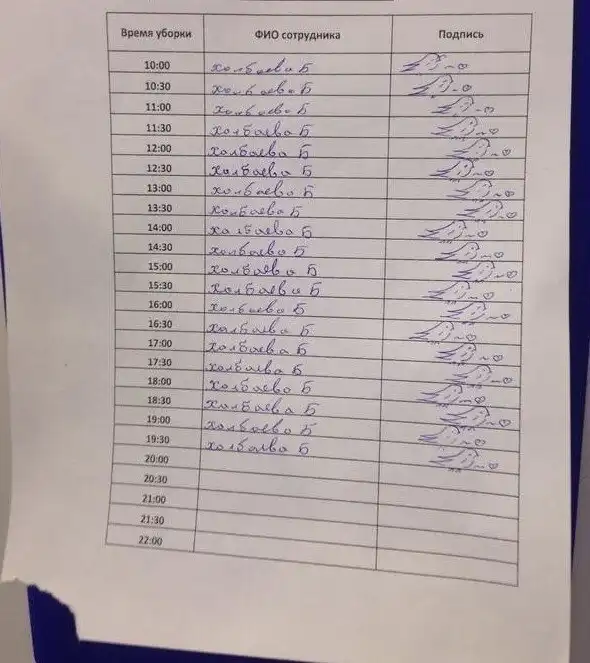 Время уборки ФИО сотрудника Подпись
10:00 Холбаева Б
10:30 Холбаева Б
11:00 Холбаева Б
11:30 Холбаева Б
12:00 Холбаева Б
12:30 Холбаева Б
13:00 Холбаева Б
13:30 Холбаева Б
14:00 Холбаева Б
14:30 Холбаева Б
15:00 Холбаева Б
15:30 Холбаева Б
16:00 Холбаева Б
16:30 Холбаева Б
17:00 Холбаева Б
17:30 Холбаева Б
18:00 Холбаева Б
18:30 Холбаева Б
19:00 Холбаева Б
19:30 Холбаева Б
20:00
20:30
21:00
21:30
22:00